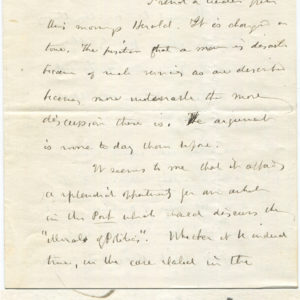 I send a leader from
this mornings Herald. It is changed in
tone. The position that a man is
because of such services as are described
becomes more the more
discussion there is. The argument
is worse to day than before.
It seems to me that it affords
a splendid opportunity for an article
in the Post which would discuss the
"Morals of Politics". Whether it is indeed
true, in the case stated in the